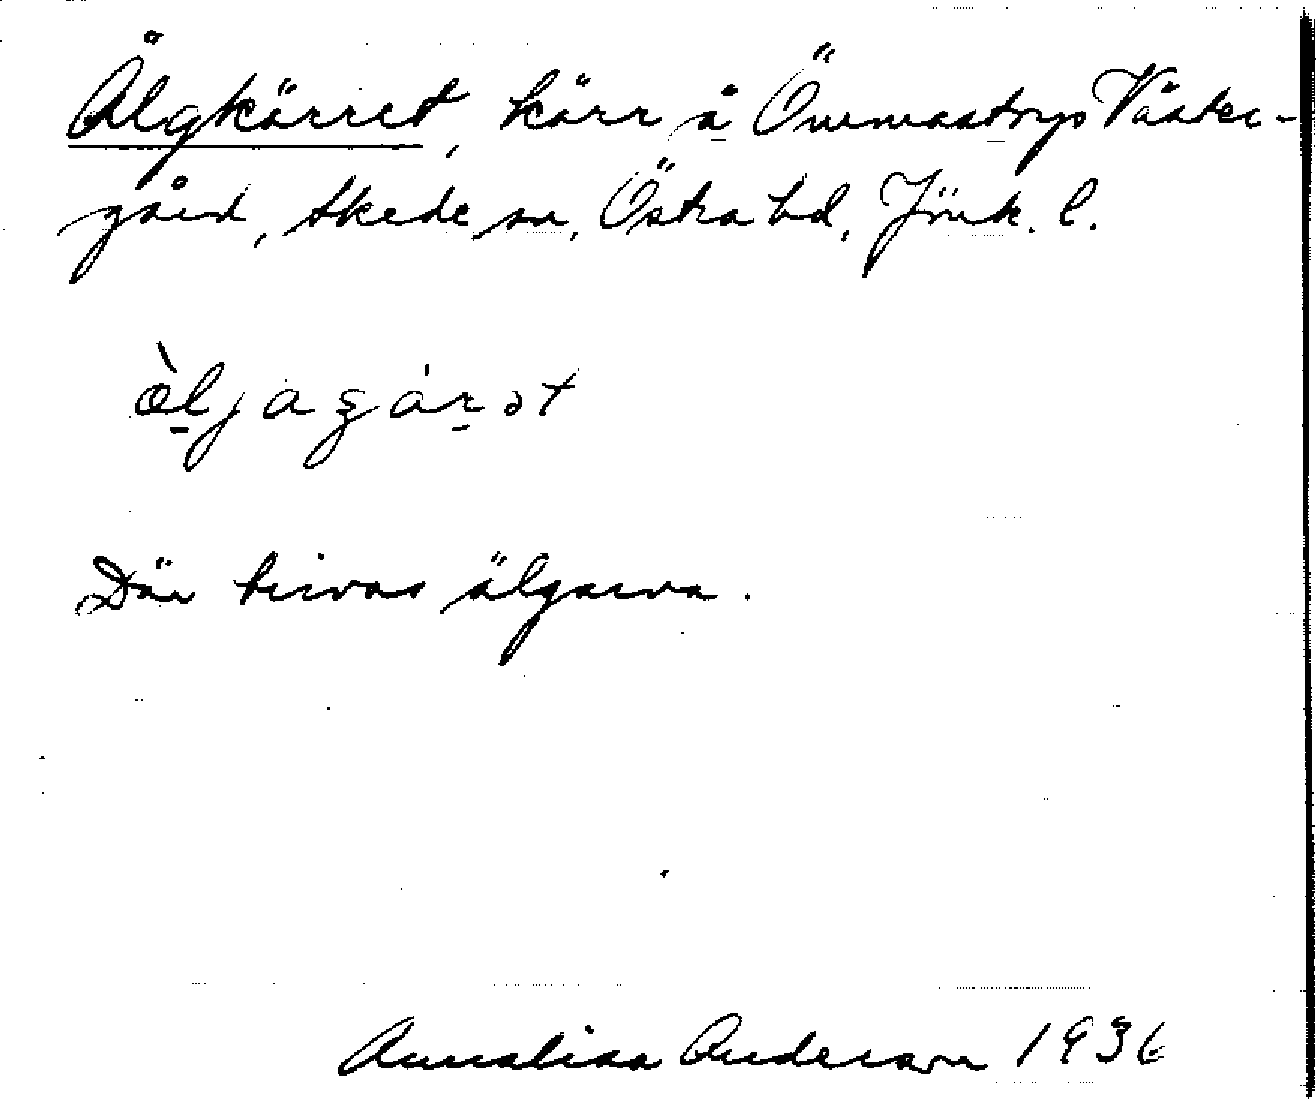 Älgkärret, kärr å Ömmastorps Väster-
gård, Skede sn, Östra hd, Jönk. l.
Där trivas älgarna.
Annalisa Anderson 1936